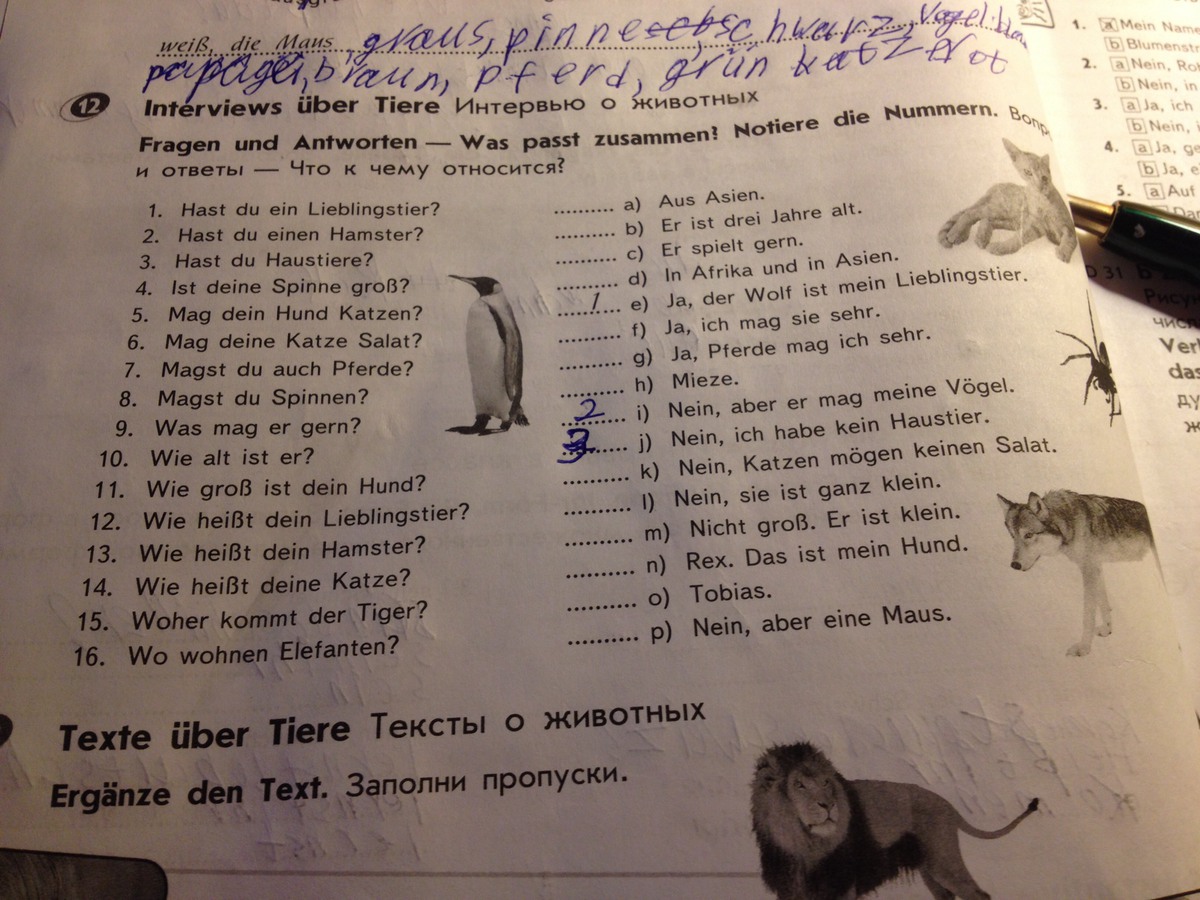 weiß, die Maus, graus, pinne schwarz, Vogel: blau
papagei, braun, pferd, grün katze rot
12 Interviews über Tiere Интервью о животных
Fragen und Antworten — Was passt zusammen? Notiere die Nummern.
и ответы — Что к чему относится?
1. Hast du ein Lieblingstier?
2. Hast du einen Hamster?
3. Hast du Haustiere?
4. Ist deine Spinne groß?
5. Mag dein Hund Katzen?
6. Mag deine Katze Salat?
7. Magst du auch Pferde?
8. Magst du Spinnen?
9. Was mag er gern?
10. Wie alt ist er?
11. Wie groß ist dein Hund?
12. Wie heißt dein Lieblingstier?
13. Wie heißt dein Hamster?
14. Wie heißt deine Katze?
15. Woher kommt der Tiger?
16. Wo wohnen Elefanten?
.......... a) Aus Asien.
.......... b) Er ist drei Jahre alt.
.......... c) Er spielt gern.
.......... d) In Afrika und in Asien.
1 e) Ja, der Wolf ist mein Lieblingstier.
.......... f) Ja, ich mag sie sehr.
.......... g) Ja, Pferde mag ich sehr.
.......... h) Mieze.
2 i) Nein, aber er mag meine Vögel.
3 j) Nein, ich habe kein Haustier.
.......... k) Nein, Katzen mögen keinen Salat.
.......... l) Nein, sie ist ganz klein.
.......... m) Nicht groß. Er ist klein.
.......... n) Rex. Das ist mein Hund.
.......... o) Tobias.
.......... p) Nein, aber eine Maus.
Texte über Tiere Тексты о животных
Ergänze den Text. Заполни пропуски.
1. a Mein Name
b Blumenstr
2. a Nein, Rot
b Nein, in
3. a Ja, ich
b Nein, i
4. a Ja, ge
b Ja, e
5. a Auf
31
das